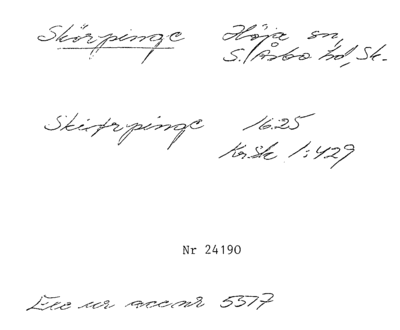 Skörpinge Höja sn,
S. Åsbo hd, Sk.
Skiörpinge 1625
KrSk 1:429
Nr 24190
Exc ur acc nr 5517